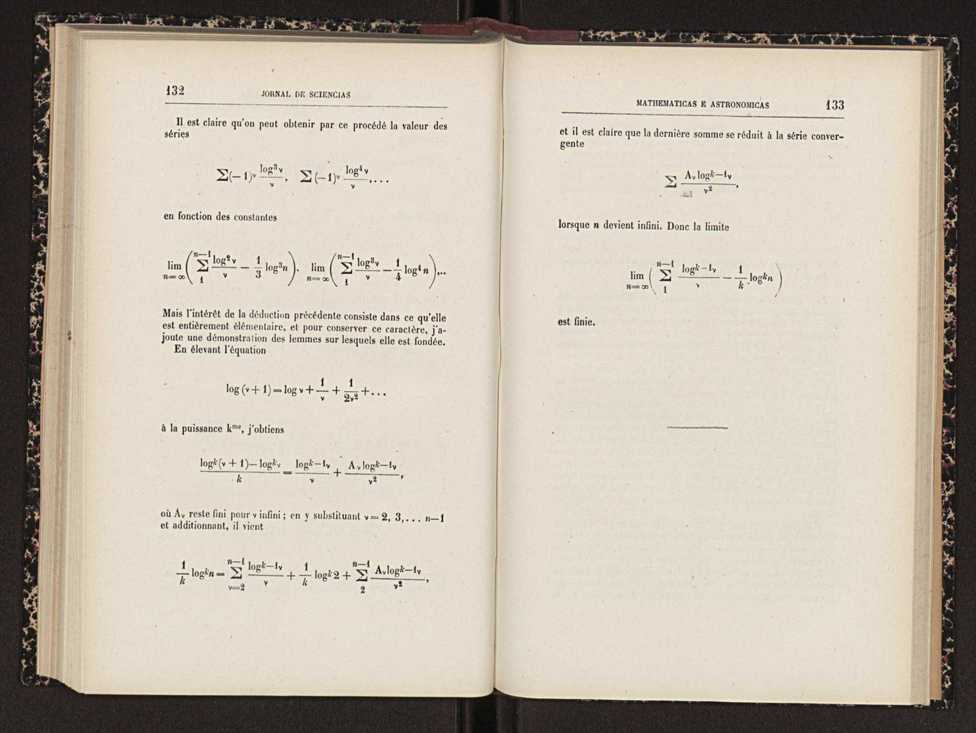 132 JORNAL DE SCIENCIAS
Il est claire qu'on peut obtenir par ce procédé la valeur des
séries
∑(—1)^ν log³ν/ν, ∑(—1)^ν log⁴ν/ν,...
en fonction des constantes
lim_{n=∞} (∑_{1}^{n—1} log²ν/ν — 1/3 log³n), lim_{n=∞} (∑_{1}^{n—1} log³ν/ν — 1/4 log⁴n),...
Mais l'intérêt de la déduction précédente consiste dans ce qu'elle
est entièrement élémentaire, et pour conserver ce caractère, j'a-
joute une démonstration des lemmes sur lesquels elle est fondée.
En élevant l'équation
log (ν + 1) = log ν + 1/ν + 1/2ν² + ...
à la puissance k^me, j'obtiens
(log^k(ν + 1) — log^k ν)/k = log^{k—1}ν/ν + A_ν log^{k—1}ν/ν²,
où A_ν reste fini pour ν infini ; en y substituant ν = 2, 3,... n—1
et additionnant, il vient
1/k log^k n = ∑_{ν=2}^{n—1} log^{k—1}ν/ν + 1/k log^k 2 + ∑_{2}^{n—1} A_ν log^{k—1}ν/ν²,
MATHEMATICAS E ASTRONOMICAS 133
et il est claire que la dernière somme se réduit à la série conver-
gente
∑ A_ν log^{k—1}ν/ν²,
lorsque n devient infini. Donc la limite
lim_{n=∞} (∑_{1}^{n—1} log^{k—1}ν/ν — 1/k log^k n)
est finie.